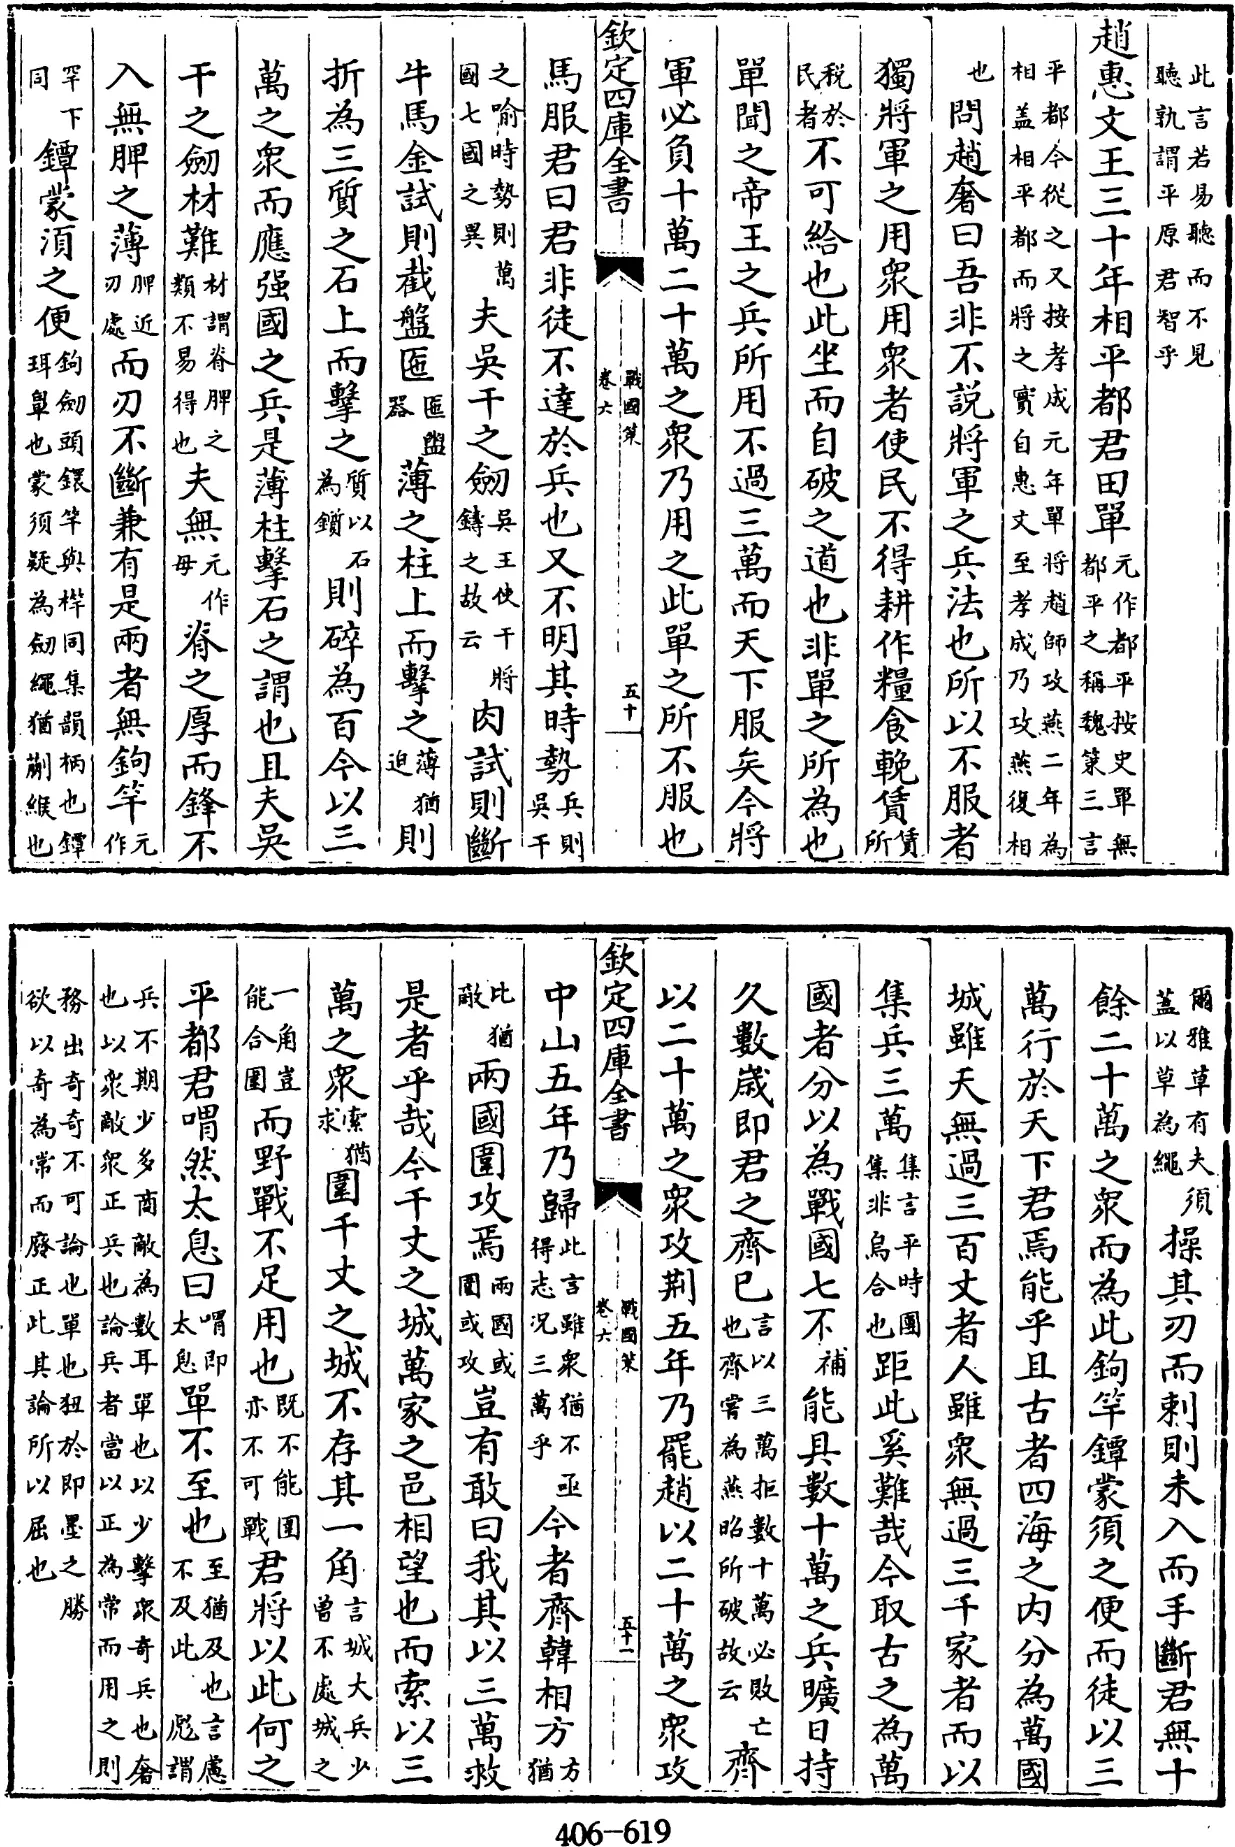 此言若易聽而不見聽孰謂平原君智乎
趙惠文王三十年相平都君田單元作都平按史單無都平之稱魏策三言
平都今從之又按孝成元年單將趙師攻燕二年為相蓋相平都而將之實自惠文至孝成乃攻燕復相
也問趙奢曰吾非不說將軍之兵法也所以不服者
獨將軍之用衆用衆者使民不得耕作糧食輓賃賃所
稅於民者不可給也此坐而自破之道也非單之所為也
單聞之帝王之兵所用不過三萬而天下服矣今將
軍必負十萬二十萬之衆乃用之此單之所不服也
欽定四庫全書 戰國策 卷六 五十
馬服君曰君非徒不達於兵也又不明其時勢兵則吳干
之喻時勢則萬國七國之異夫吳干之劒吳王使干將鑄之故云肉試則斷
牛馬金試則截盤匜匜盥器薄之柱上而擊之薄猶迫則
折為三質之石上而擊之質以石為鑕則碎為百今以三
萬之衆而應强國之兵是薄柱擊石之謂也且夫吳
干之劒材難材謂脊脾之類不易得也夫無元作毋脊之厚而鋒不
入無脾之薄脾近刃處而刃不斷兼有是兩者無鉤竿元作
罕下同鐔蒙湏之便鉤劒頭鐶竿與桿同集韻柄也鐔珥鼻也蒙須疑為劒繩猶蒯緱也
爾雅草有夫須蓋以草為繩操其刃而刺則未入而手斷君無十
餘二十萬之衆而為此鉤竿鐔蒙須之便而徒以三
萬行於天下君焉能乎且古者四海之內分為萬國
城雖大無過三百丈者人雖衆無過三千家者而以
集兵三萬集言平時團集非烏合也距此奚難哉今取古之為萬
國者分以為戰國七不補能具數十萬之兵曠日持
久數歲即君之齊已言以三萬拒數十萬必敗亡也齊嘗為燕昭所破故云齊
以二十萬之衆攻荆五年乃罷趙以二十萬之衆攻
欽定四庫全書 戰國策 卷六 五十一
中山五年乃歸此言雖衆猶不亟得志况三萬乎今者齊韓相方方猶
比猶敵兩國圍攻焉兩國或圍或攻豈有敢曰我其以三萬救
是者乎哉今千丈之城萬家之邑相望也而索以三
萬之衆索猶求圍千丈之城不存其一角言城大兵少曾不處城之
一角豈能合圍而野戰不足用也既不能圍亦不可戰君將以此何之
平都君喟然太息曰喟即太息單不至也至猶及也言慮不及此彪謂
兵不期少多商敵為數耳單也以少擊衆奇兵也奢也以衆敵衆正兵也論兵者當以正為常而用之則
務出奇奇不可論也單也狃於即墨之勝欲以奇為常而廢正此其論所以屈也
406-619